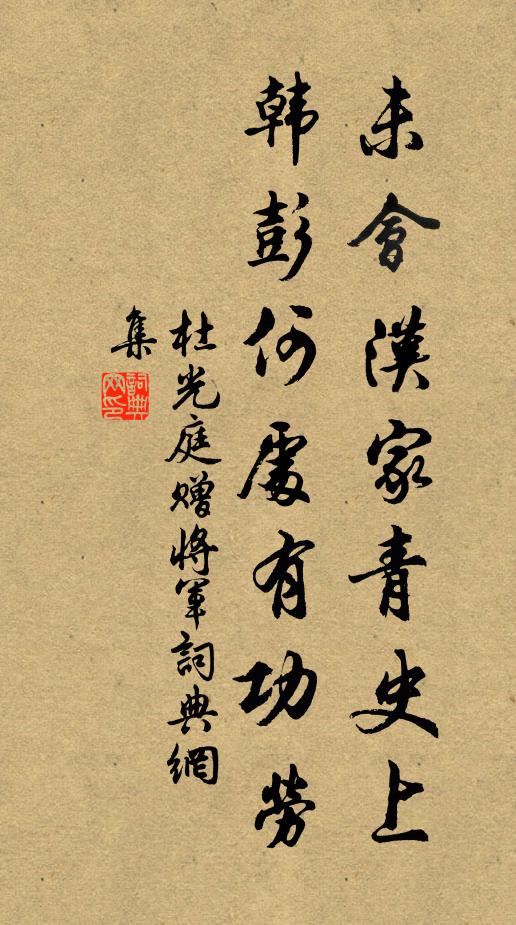 未會漢家青史上
韩彭何處有功勞
杜光庭贈將軍詞典網
集
詞典
网印